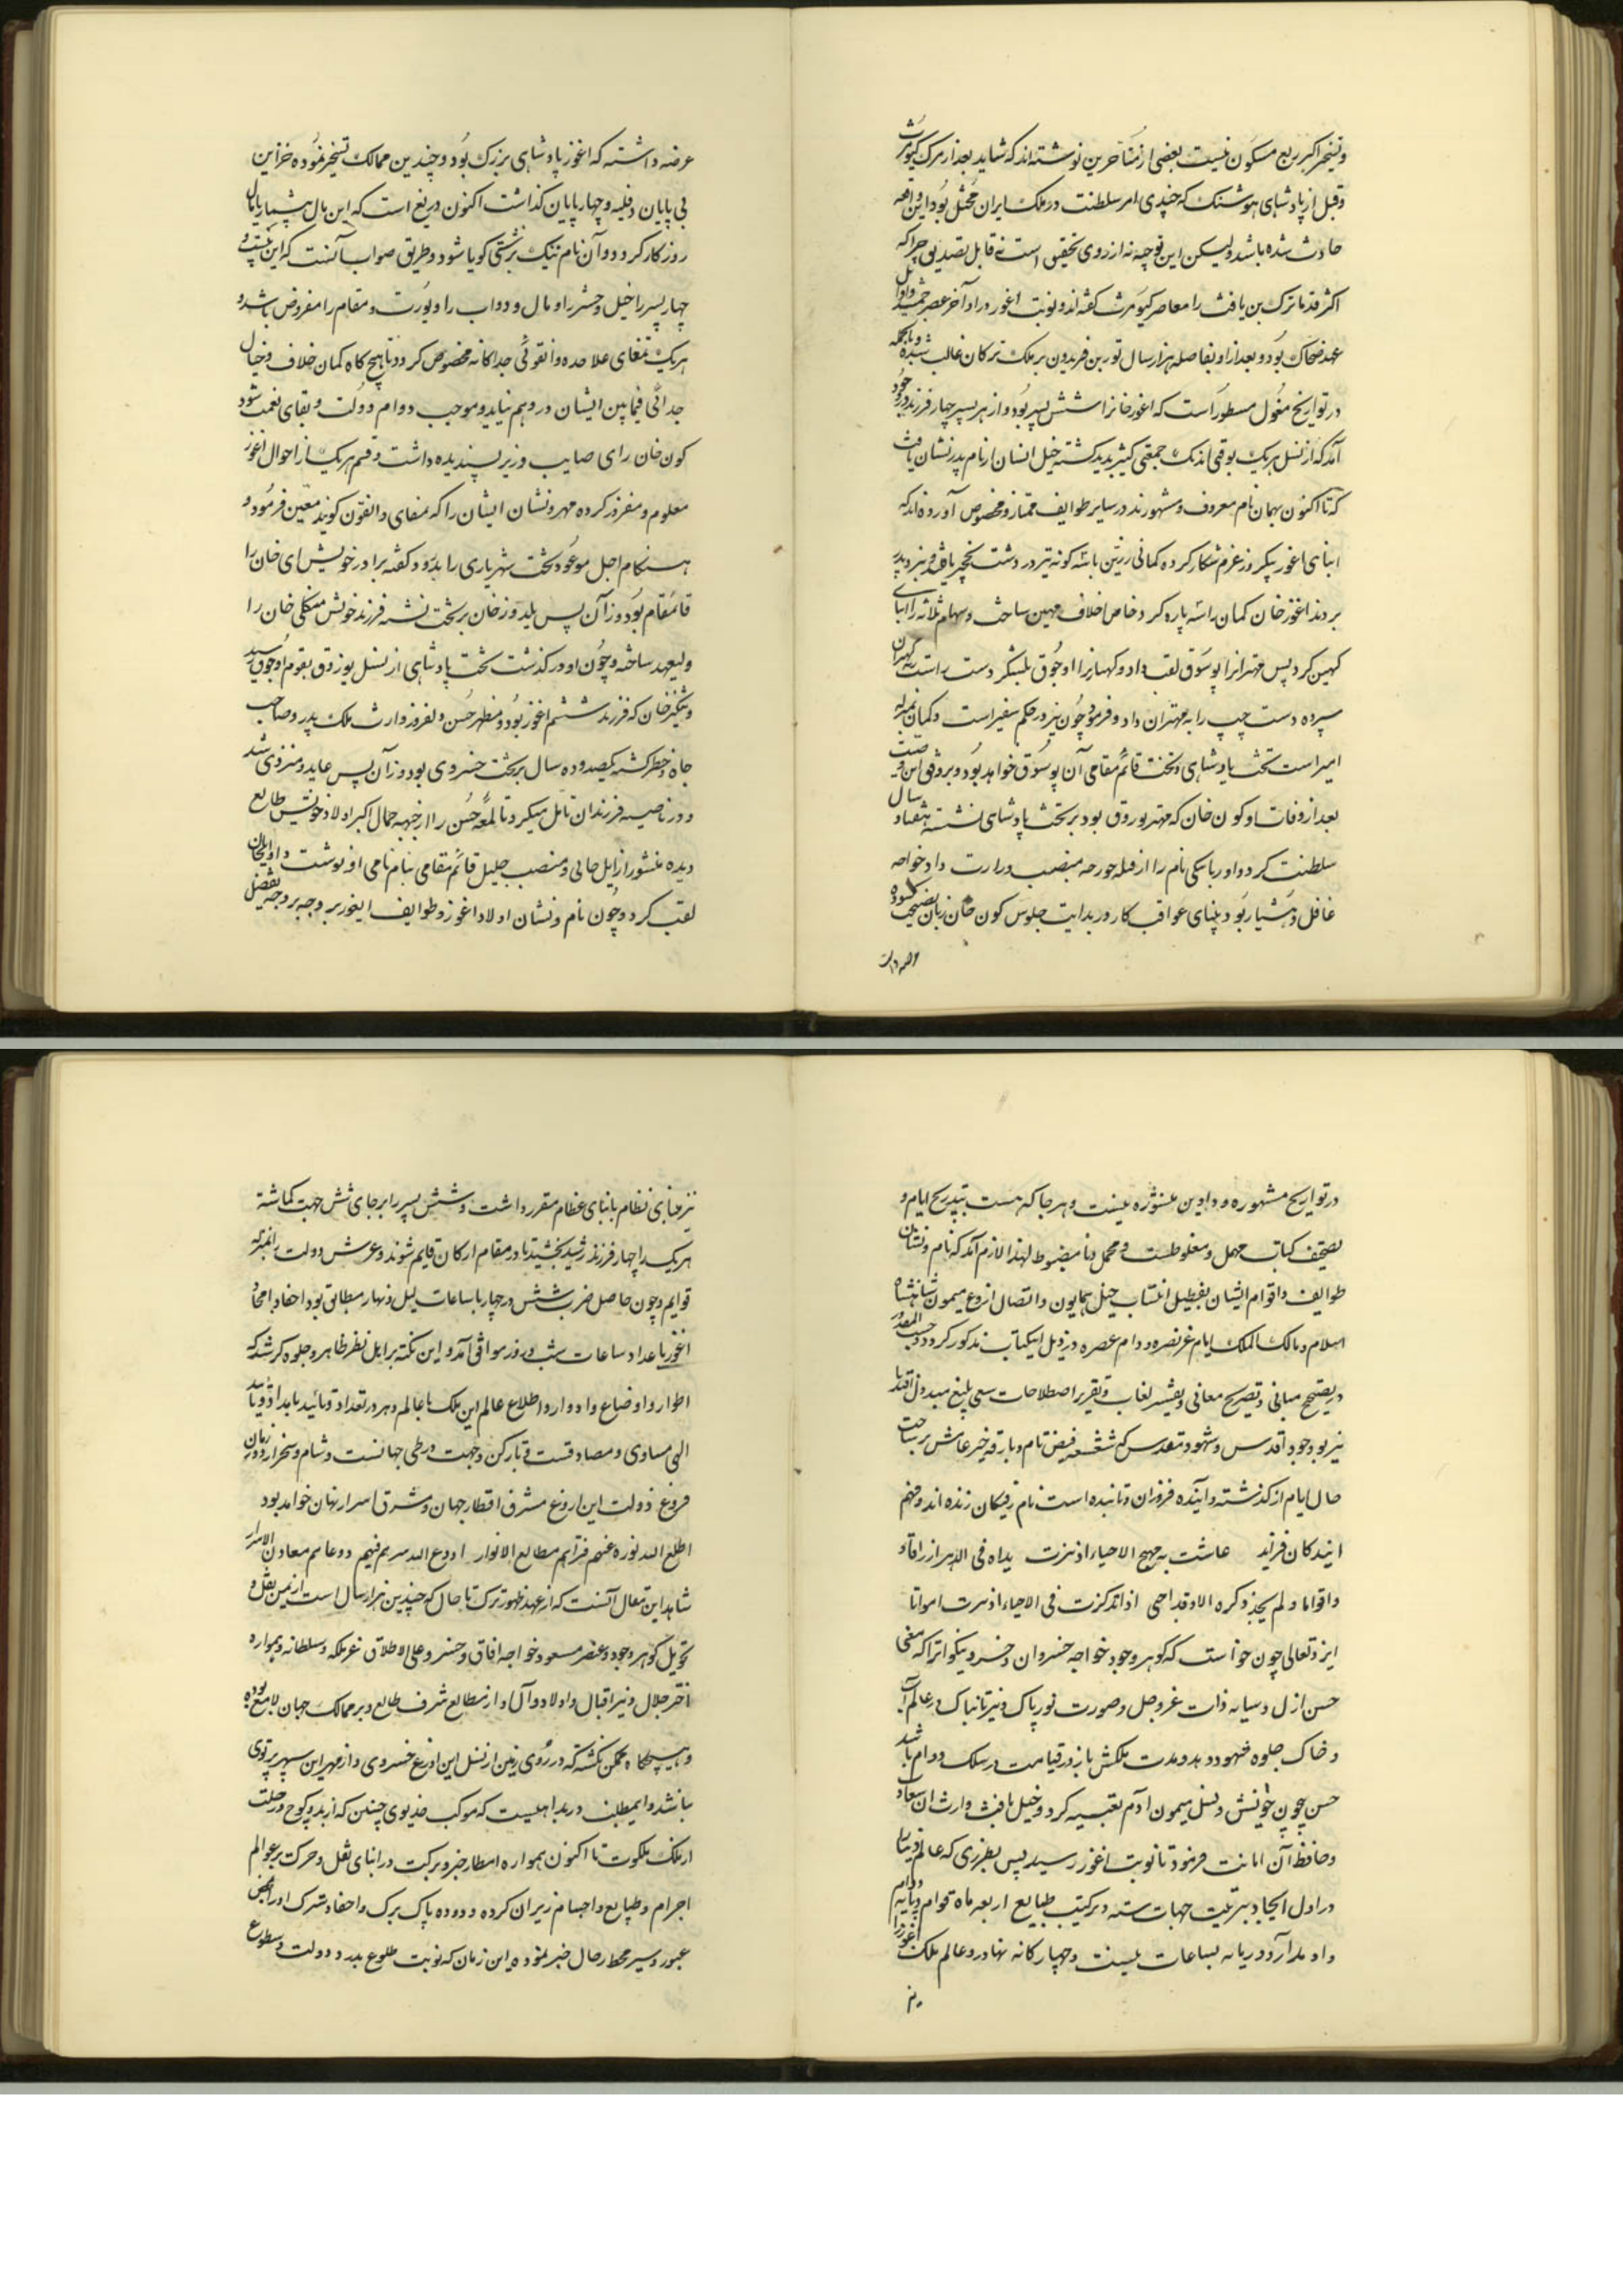 و تسخیر اکثر ربع مسکون نیست بعضی از متأخرین نوشته‌اند که شاید بعد از مرک کیومرث
و قبل از پادشاهی هوشنک که چندی امر سلطنت در ملک ایران مختل بود این واقعه
حادث شده باشد ولیکن این توجیه نه از روی تحقیق است نه قابل تصدیق چرا که
اکثر قدما ترک بن یافث را معاصر کیومرث کفته‌اند و نوبت اغوز در اواخر عصر جمشید و اوایل
عهد ضحاک بود و بعد از او بفاصله هزار سال تور بن فریدون بر ملک ترکان غالب شده و بالجمله
در تواریخ مغول مسطور است که اغوز خانرا شش پسر بود و از هر پسر چهار فرزند در وجود
آمد که از نسل هر یک بوقی اندک جمعی کثیر پدید کشته خیل ایشان از نام پدر نشان یافت
که تا اکنون بهمان نام معروف و مشهورند در سایر طوایف ممتاز و مخصوص آورده‌اند که
ابنای اغوز یکروز عزم شکار کرده کمانی زرین با سه کونه تیر در دشت نخجیر یافته و نزد پدر
بردند اغوز خان کمان را سه پاره کرد و خاص اخلاف مهین ساخت و سهام ثلاثه را ابنای
کهین کرد پس مهترانرا بوسوق لقب داد و کهانرا اوجوق بلشکر دست راست به کهتران
سپرده دست چپ را به مهتران داد و فرمود چون تیر در حکم سفیر است و کمان بمنزله
امیر است تخت پادشاهی و تخت قائم مقامی آن بوسوق خواهد بود و بر وفق این وصیت
بعد از وفات او کون خان که مهتر بوزوق بود بر تخت پادشاهی نشسته هفتاد سال
سلطنت کرد و او را نام را از قبله منصب وزارت داد خواجه
غافل و هشیار بود و بینای عواقب کار در بدایت جلوس کون خان زبان بنصیحت کشوده
عرضه داشت
عرضه داشته که اغوز پادشاهی بزرک بود و چندین ممالک تسخیر نموده خزاین
بی پایان دفینه و چهارپایان کذاشت اکنون دریغ است که این مال بیشمار پامال
روزکار کردد و آن نام نیک بزشتی کویا شود و طریق صواب آنست که این بیست و
چهار پسر را خیل و حشر را و مال و دواب را و یورت و مقام را مفروض باشد و
هر یک تمغای علاحده و انقونی جداکانه مخصوص کردد تا هیچکاه کمان خلاف و خیال
جدائی فیمابین ایشان در وهم نیاید و موجب دوام دولت و بقای نعمت شود
کون خان رای صایب وزیر پسندیده داشت و قسم هر یک را از احوال اغوز
معلوم و مفروز کرده مهر و نشان ایشان را که تمغای و انقون کویند معین فرمود و
هنکام اجل موعود تخت شهریاری را بدرود کفته برادر خویش ای خان را
قائمقام بود و زآن پس یلدوز خان بر تخت نشسته فرزند خویش منکلی خان را
ولیعهد ساخته و چون او در کذشت تخت پادشاهی از نسل بوزوق بقوم اوجوق رسید
و تنکیز خان که فرزند ششم اغوز بود و مظهر حسن دلفروز وارث ملک پدر و صاحب
جاه و خطر کشته یکصد و ده سال بر تخت خسروی بود و زآن پس عابد و منزوی شد
و در ناصیه فرزندان تامل میکرد تا لمعه حسن را از جبهه جمال اکبر اولاد خویش طالع
دیده منشور از ایل خالی و منصب جلیل قائم مقامی بنام نامی او نوشت و او ایلخان
لقب کرد و چون نام و نشان اولاد اغوز و طوایف ایغور بر وجه بر وجه تفصیل
در تواریخ مشهوره و دواوین منشوره نیست و هر جا که هست بتدریج ایام و
تصحیف کتاب مهمل و مغلوطست و مجمل و نامضبوط لهذا لازم آمد که نام و نشان
طوایف و اقوام ایشان بتفصیل انتساب خیل همایون و اتصال اروغ میمون شاهنشاه
اسلام و مالک الملک ایام عز نصره و دام عصره در ذیل این کتاب مذکور کردد و حسب المقدور
در تصحیح مبانی و تصریح معانی و تفسیر لغات و تقریر اصطلاحات سعی بلیغ مبذول افتد تا
نیز بوجود اقدس و شهود مقدس که شعشعه فیض تام و بارقه خیر عامش بر ساحت
حال ایام از کذشته و آینده فروزان و تابنده است نام رفتکان زنده‌اند و فهم
ایندکان فزاید عاشت به مهج الاحیاء اذ نزت یداه فی الدهر ارزاقا و
و اقواما و لم یجد ذکره الا و قد احیی اذا تذکرت فی الاحیاء اذ نسرت امواتا
ایزد تعالی چون خواست که کوهر وجود خواجه خسروان و خسرو نیکو اترا که معنی
حسن ازل و سایه ذات عزوجل و صورت نور پاک و نیر تابناک در عالم آب
و خاک جلوه ظهور دهد و مدت ملکش با روز قیامت در سلک دوام باشد
حسن عیون خویش و نسل میمون آدم تعبیه کرد و خیل یافث وارث ان سعادت
و حافظ آن امانت فرمود تا نوبت اغوز رسید پس بطرزی که عالم دنیا را
در اول ایجاد به تربیت جهات سته و ترکیب طبایع اربعه ماه قوام و پایه دوام
داد مدار آدوریانه بساعات بیست و چهارکانه نهاد در عالم ملک اغوز را
نیز
نیز مبنای نظام بابنای عظام مقرر داشت و شش پسر را بر جای شش جهت کماشته
هر یک را چهار فرزند رشید بخشید تا در مقام ارکان قایم شوند و عرش دولت را بمنزله
قوایم و چون حاصل ضرب شش در چهار با ساعات لیل و نهار مطابق بود احفاد امجاد
اغوز با عداد ساعات شب و روز موافق آمد و این نکته بر اهل نظر ظاهر و جلوه کر شد که
اطوار و اوضاع و ادوار و اطلاع عالم این ملک با عالم دهر در تعداد و تائید
الهی مساوی و مصادقست و تا رکن و جهت در طی جهانست و شام و سحر از دور زمان
فروغ دولت این اروغ مشرف اقطار جهان و مشرق اسرار نهان خواهد بود
اطلع الله نوره عنهم فتراهم مطالع الانوار اودع الله سرهم فیهم و دعاهم معادن الاسرار
شاهد این مقال آنست که از عهد ظهور ترک تا حال که چندین هزار سال است از یمن نقل و
تحویل کوهر وجود و عنصر مسعود خواجه افاق و خسرو علی الاطلاق عز ملکه و سلطانه همواره
اختر جلال و نیر اقبال و اولاد و آل او از مطالع شرف طالع و بر ممالک جهان لامع بوده
و هیچکاه ممکن نکشته که در روی زمین از نسل این اروغ خسروی و از مهر این سپهر پرتوی
نباشد و اینمطلب در بداهتیست که موکب خدیوی چنین که از بدو کوچ و رحلت
از ملک ملکوت تا اکنون همواره امطار خیر و برکت در اثنای نقل و حرکت بر عوالم
اجرام و طبایع و اجسام ریزان کرده و دوده پاک ترک و احفاد سترک او را محض
عبور و سیر محط رحال خیر نموده این زمان که نوبت طلوع بدر دولت و سطوع